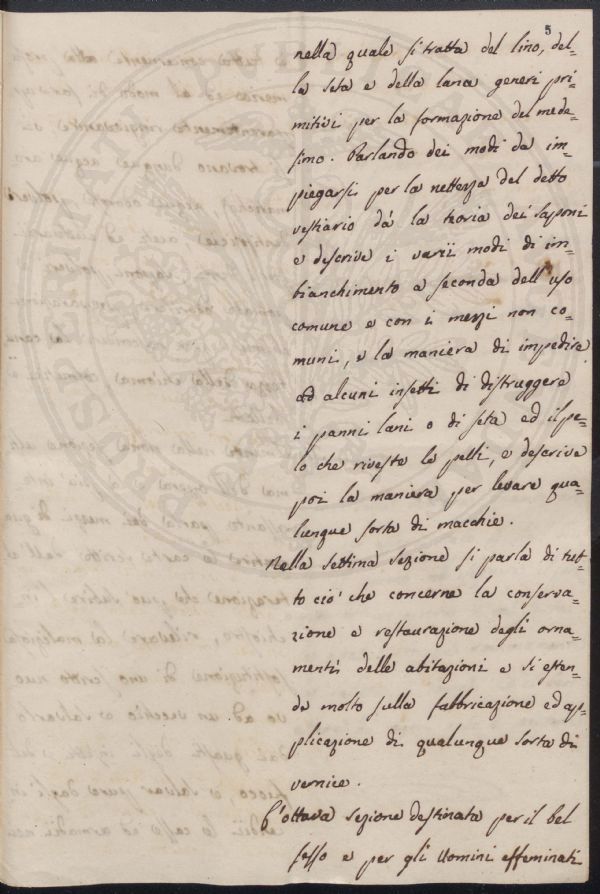 5
nella quale si tratta del lino, del=
la seta e della lana generi pri=
mitivi per la formazione del mede=
simo. Parlando dei modi da im=
piegarsi per la nettezza del detto
vestiario dà la teoria dei saponi
e descrive i varii modi di im=
bianchimento a seconda dell'uso
comune e con i mezzi non co=
muni, e la maniera di impedire
ad alcuni insetti di distruggere
i panni lani o di seta ed il pe=
lo che riveste le pelli, e descrive
poi la maniera per levare qua=
lunque sorta di macchie.
Nella settima sezione si parla di tut=
to ciò che concerne la conserva=
zione e restaurazione degli orna=
menti delle abitazioni e si esten=
de molto sulla fabbricazione ed ap=
plicazione di qualunque sorta di
vernice.
L'ottava sezione destinata per il bel
sesso e per gli Uomini effeminati